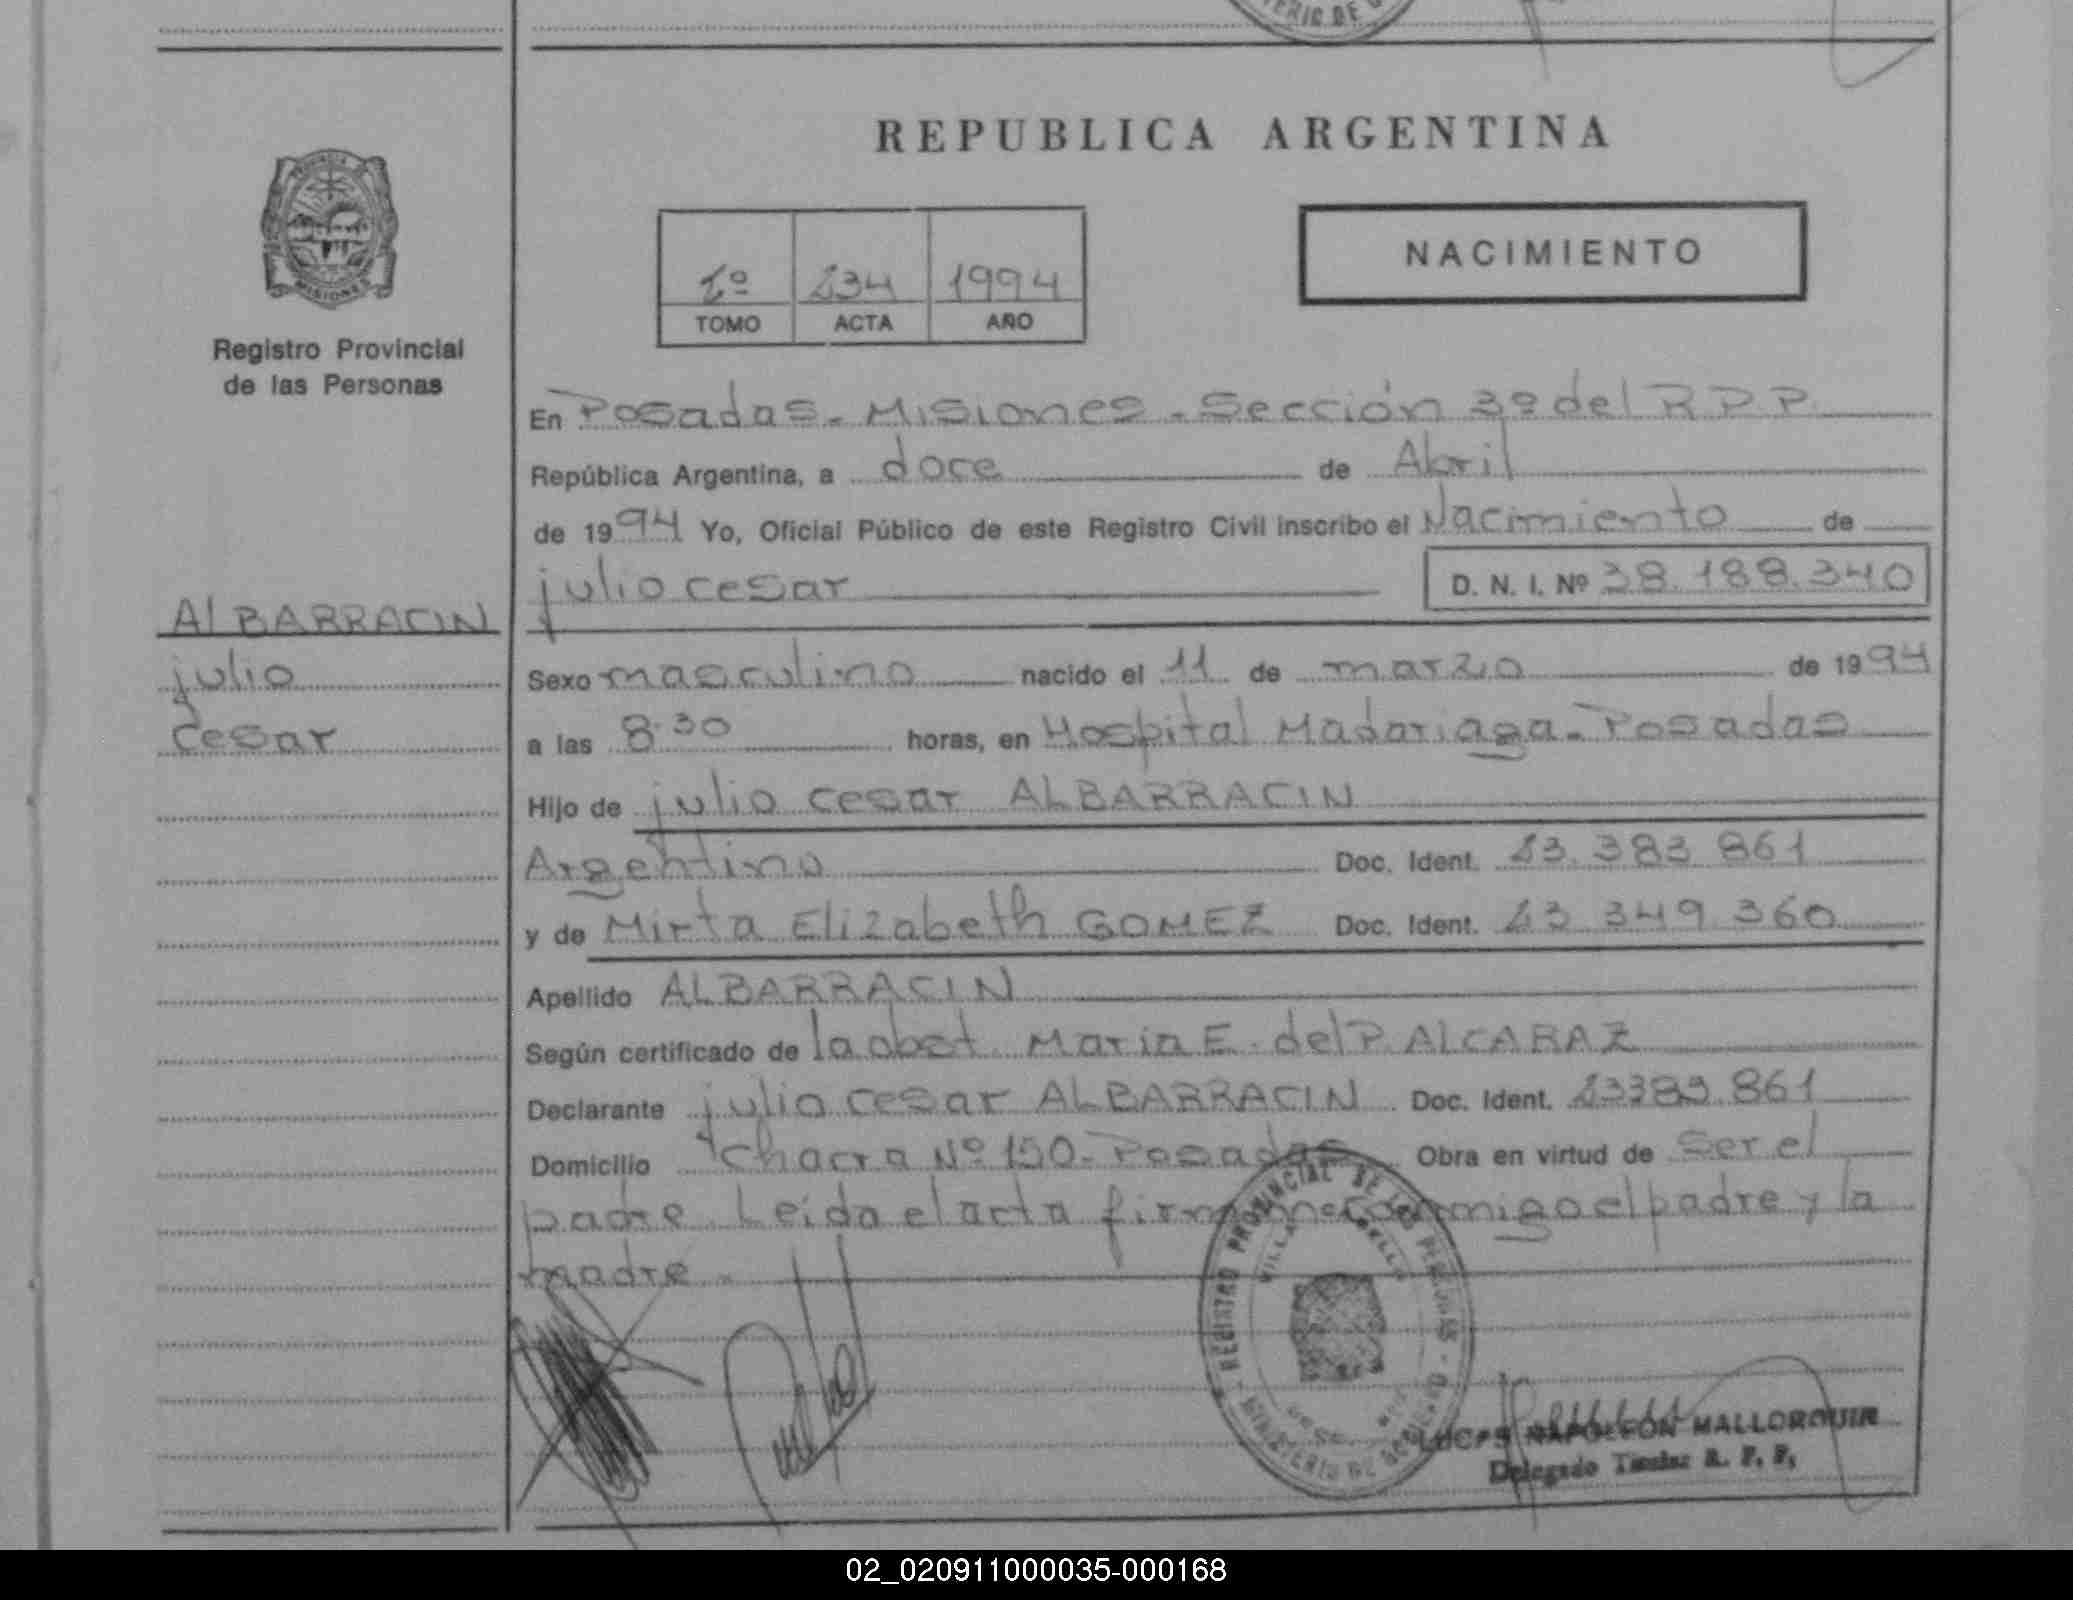 REPUBLICA ARGENTINA
PROVINCIA
MISIONES
Registro Provincial
de las Personas
NACIMIENTO
1º 234 1994
TOMO ACTA AÑO
En Posadas - Misiones - Sección 3º del R P P
República Argentina, a doce de Abril
de 1994 Yo, Oficial Público de este Registro Civil inscribo el Nacimiento de
julio cesar D. N. I. Nº 38.188.340
ALBARRACIN
julio
cesar
Sexo masculino nacido el 11 de marzo de 1994
a las 8.30 horas, en Hospital Madariaga - Posadas
Hijo de julio cesar ALBARRACIN
Argentino Doc. Ident. 23.383.861
y de Mirta Elizabeth GOMEZ Doc. Ident. 23.349.360
Apellido ALBARRACIN
Según certificado de la obst. Maria E. del P. ALCARAZ
Declarante julio cesar ALBARRACIN Doc. Ident. 23383.861
Domicilio Chacra Nº 150 - Posadas Obra en virtud de Ser el
padre. Leida el acta firman conmigo el padre y la
madre.
REGISTRO PROVINCIAL DE LAS PERSONAS - MINISTERIO DE GOBIERNO
LUCAS NAPOLEON MALLORQUIN
Delegado Titular R. P. P.
02_020911000035-000168